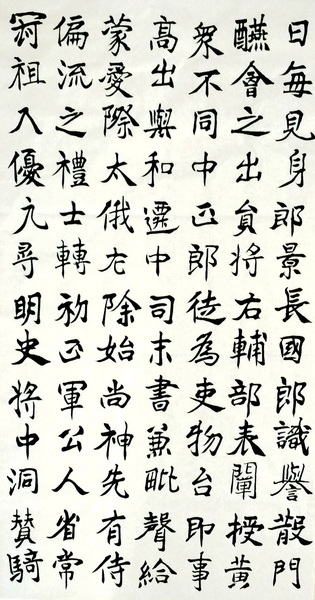 冠偏蒙高衆醼日
祖流愛出不會每
入之際與同之見
優禮太和中出身
九士俄遷正員郎
尋轉左中郎將景
明初除司徒右長
史正始末為輔國
將軍尚書吏部郎
中公神兼物表識
洞人先毗台闡譽
贊省有聲即授散
騎常侍給事黄門